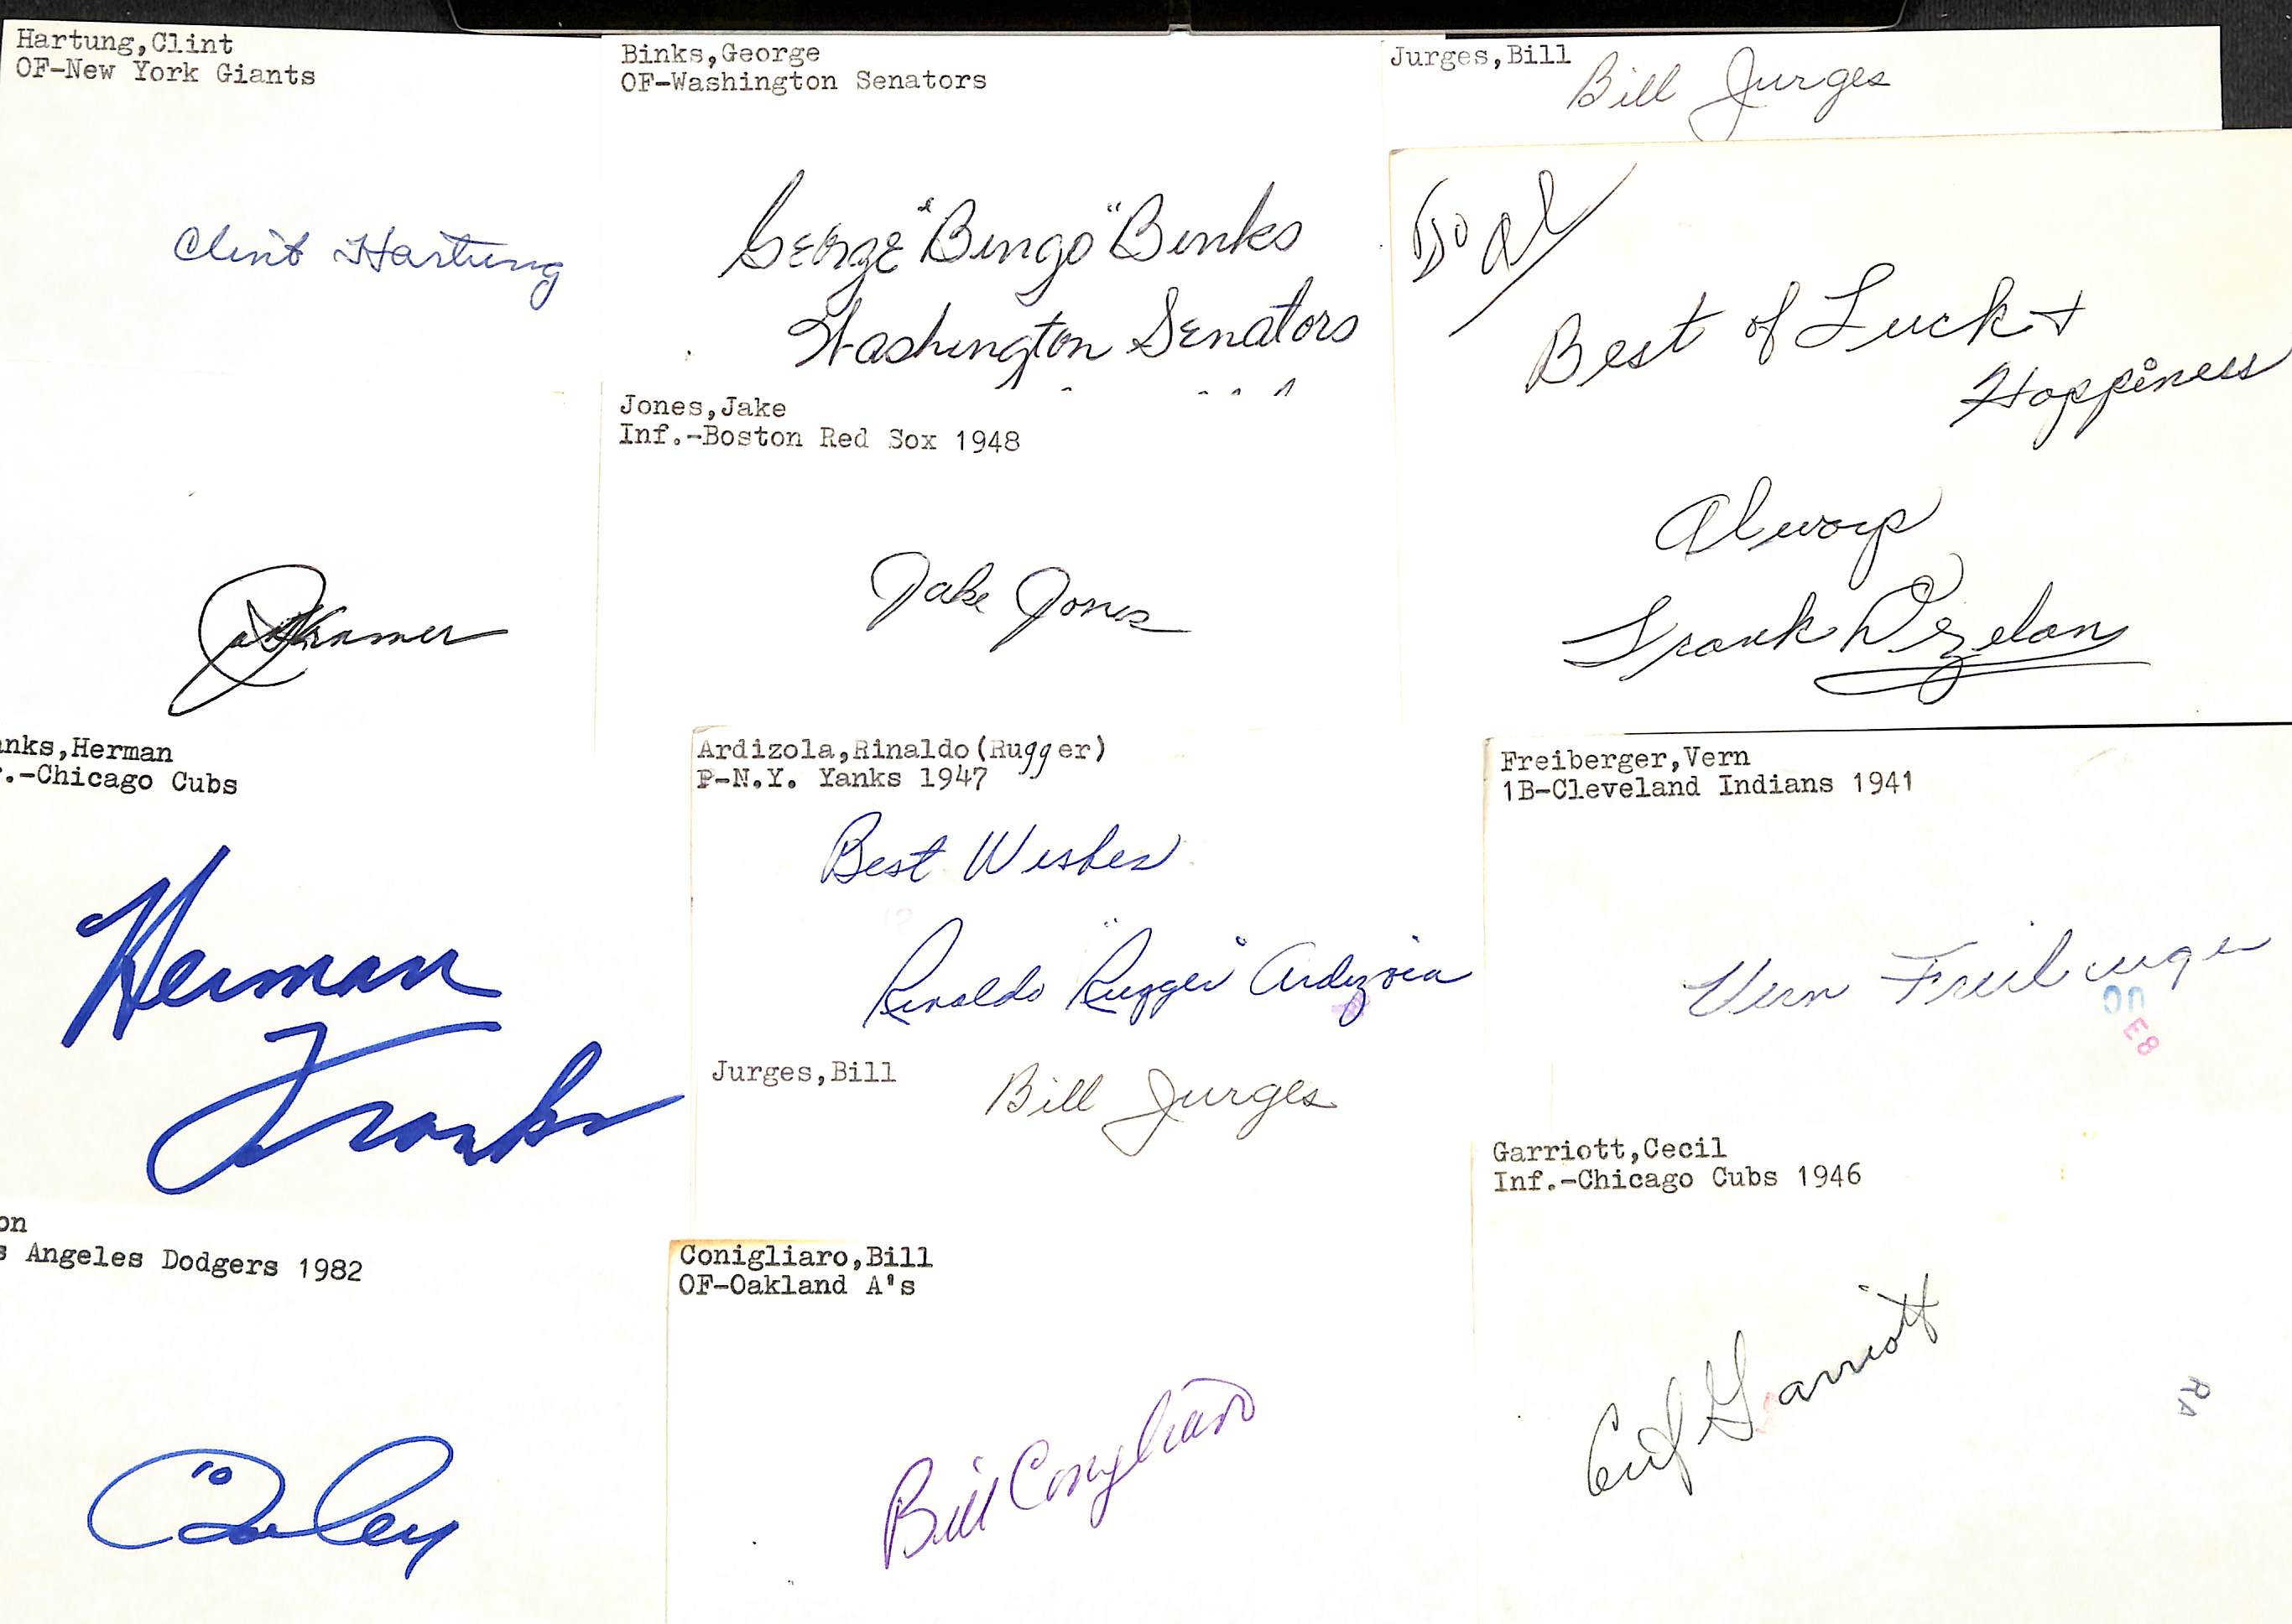 Hartung,Clint
OF-New York Giants
Clint Hartung
Binks,George
OF-Washington Senators
George "Bingo" Binks
Washington Senators
Jurges,Bill
Bill Jurges
To Al
Best of Luck +
Happiness
Always
Frank
Jones,Jake
Inf.-Boston Red Sox 1948
Jake Jones
Jack Kramer
anks,Herman
.-Chicago Cubs
Herman
Franks
Ardizola,Rinaldo(Rugger)
P-N.Y. Yanks 1947
Best Wishes
Rinaldo "Rugger" Ardizoia
Freiberger,Vern
1B-Cleveland Indians 1941
Vern Freiburger
E8
Jurges,Bill
Bill Jurges
Garriott,Cecil
Inf.-Chicago Cubs 1946
Cecil Garriott
RA
on
s Angeles Dodgers 1982
10
Conigliaro,Bill
OF-Oakland A's
Bill Conigliaro